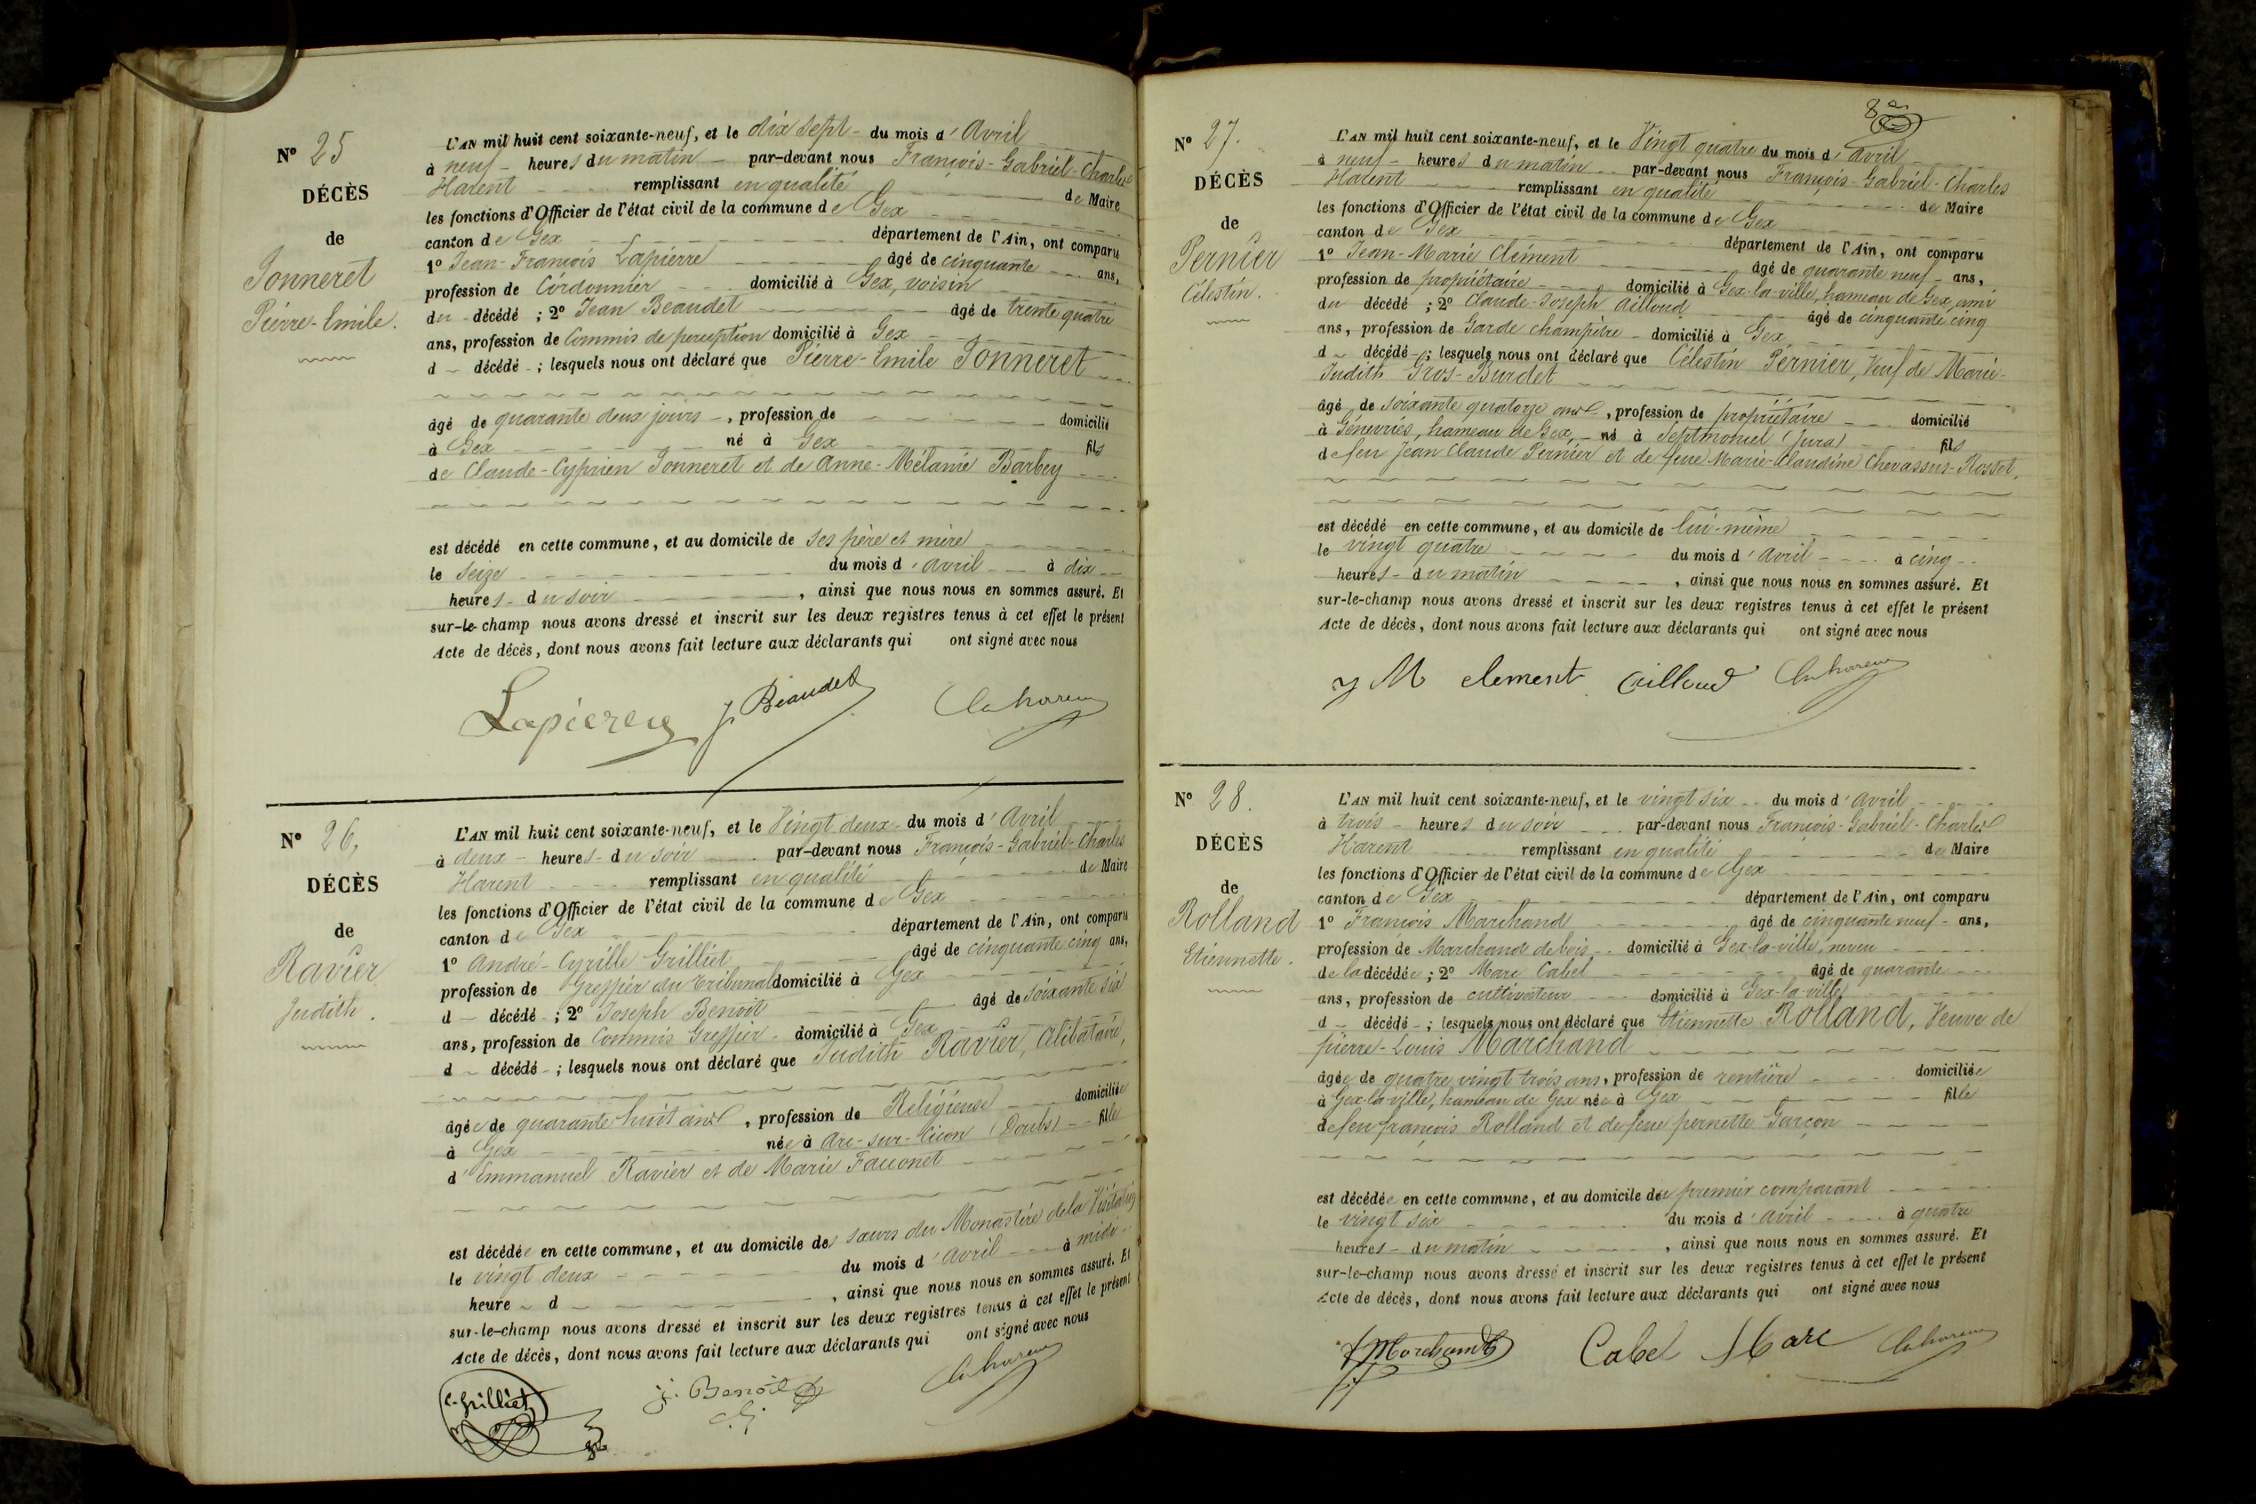 Nº 25
DÉCÈS
de
Jonneret
Pierre-Emile.
L'AN mil huit cent soixante-neuf, et le dix sept du mois d'Avril
à neuf heures du matin par-devant nous François-Gabriel-Charles
Harent remplissant en qualité de Maire
les fonctions d'Officier de l'état civil de la commune de Gex
canton de Gex département de l'Ain, ont comparu
1º Jean-François Lapierre âgé de cinquante ans,
profession de Cordonnier domicilié à Gex, voisin
du décédé ; 2º Jean Beaudet âgé de trente quatre
ans, profession de Commis de perception domicilié à Gex
d décédé ; lesquels nous ont déclaré que Pierre-Emile Jonneret
âgé de quarante deux jours, profession de domicilié
à Gex né à Gex fils
de Claude-Cyprien Jonneret et de Anne-Mélanie Barbey
est décédé en cette commune, et au domicile de ses père et mère
le seize du mois d'avril à dix
heures du soir, ainsi que nous nous en sommes assuré. Et
sur-le-champ nous avons dressé et inscrit sur les deux registres tenus à cet effet le présent
Acte de décès, dont nous avons fait lecture aux déclarants qui ont signé avec nous
Lapierre J. Beaudet Ch harent
Nº 26,
DÉCÈS
de
Ravier
Judith.
L'AN mil huit cent soixante-neuf, et le Vingt deux du mois d'Avril
à deux heures du soir par-devant nous François-Gabriel-Charles
Harent remplissant en qualité de Maire
les fonctions d'Officier de l'état civil de la commune de Gex
canton de Gex département de l'Ain, ont comparu
1º André-Cyrille Grilliet âgé de cinquante cinq ans,
profession de Greffier du tribunal domicilié à Gex
d décédé ; 2º Joseph Benoit âgé de soixante six
ans, profession de Commis Greffier domicilié à Gex
d décédé ; lesquels nous ont déclaré que Judith Ravier, Célibataire,
âgée de quarante-huit ans, profession de Religieuse domiciliée
à Gex née à Arc-sur-Cicon (Doubs) fille
d'Emmanuel Ravier et de Marie Fauconet
est décédée en cette commune, et au domicile des sœurs du Monastère de la Visitation
le vingt deux du mois d'avril à midi
heure d, ainsi que nous nous en sommes assuré. Et
sur-le-champ nous avons dressé et inscrit sur les deux registres tenus à cet effet le présent
Acte de décès, dont nous avons fait lecture aux déclarants qui ont signé avec nous
C. Grilliet J. Benoit Ch harent
C. G.
Nº 27.
DÉCÈS
de
Pernier
Célestin.
L'AN mil huit cent soixante-neuf, et le Vingt quatre du mois d'avril
à neuf heures du matin par-devant nous François-Gabriel-Charles
Harent remplissant en qualité de Maire
les fonctions d'Officier de l'état civil de la commune de Gex
canton de Gex département de l'Ain, ont comparu
1º Jean-Marie Clément âgé de quarante neuf ans,
profession de propriétaire domicilié à Gex-la-ville, hameau de Gex, ami
du décédé ; 2º Claude-Joseph Ailloud âgé de cinquante cinq
ans, profession de Garde champêtre domicilié à Gex
d décédé ; lesquels nous ont déclaré que Célestin Pernier, Veuf de Marie-
Judith Gros-Burdet
âgé de soixante quatorze ans, profession de propriétaire domicilié
à Génevriés, hameau de Gex, né à Septmoncel (Jura) fils
de feu Jean Claude Pernier et de feue Marie-Claudine Chevassus-Rosset.
est décédé en cette commune, et au domicile de lui-même
le vingt quatre du mois d'avril à cinq
heures du matin, ainsi que nous nous en sommes assuré. Et
sur-le-champ nous avons dressé et inscrit sur les deux registres tenus à cet effet le présent
Acte de décès, dont nous avons fait lecture aux déclarants qui ont signé avec nous
J M clement Ailloud Ch harent
Nº 28.
DÉCÈS
de
Rolland
Etiennette.
L'AN mil huit cent soixante-neuf, et le vingt six du mois d'avril
à trois heures du soir par-devant nous François-Gabriel-Charles
Harent remplissant en qualité de Maire
les fonctions d'Officier de l'état civil de la commune de Gex
canton de Gex département de l'Ain, ont comparu
1º François Marchand âgé de cinquante neuf ans,
profession de Marchand de bois domicilié à Gex-la-ville, neveu
de la décédée ; 2º Marc Cabel âgé de quarante
ans, profession de cultivateur domicilié à Gex-la-ville
d décédé ; lesquels nous ont déclaré que Etiennette Rolland, Veuve de
pierre-Louis Marchand
âgée de quatre vingt trois ans, profession de rentière domiciliée
à Gex-la-ville, hameau de Gex née à Gex fille
de feu françois Rolland et de feue pernette Garçon
est décédée en cette commune, et au domicile du premier comparant
le vingt six du mois d'avril à quatre
heures du matin, ainsi que nous nous en sommes assuré. Et
sur-le-champ nous avons dressé et inscrit sur les deux registres tenus à cet effet le présent
Acte de décès, dont nous avons fait lecture aux déclarants qui ont signé avec nous
f Marchand Cabel Marc Ch harent